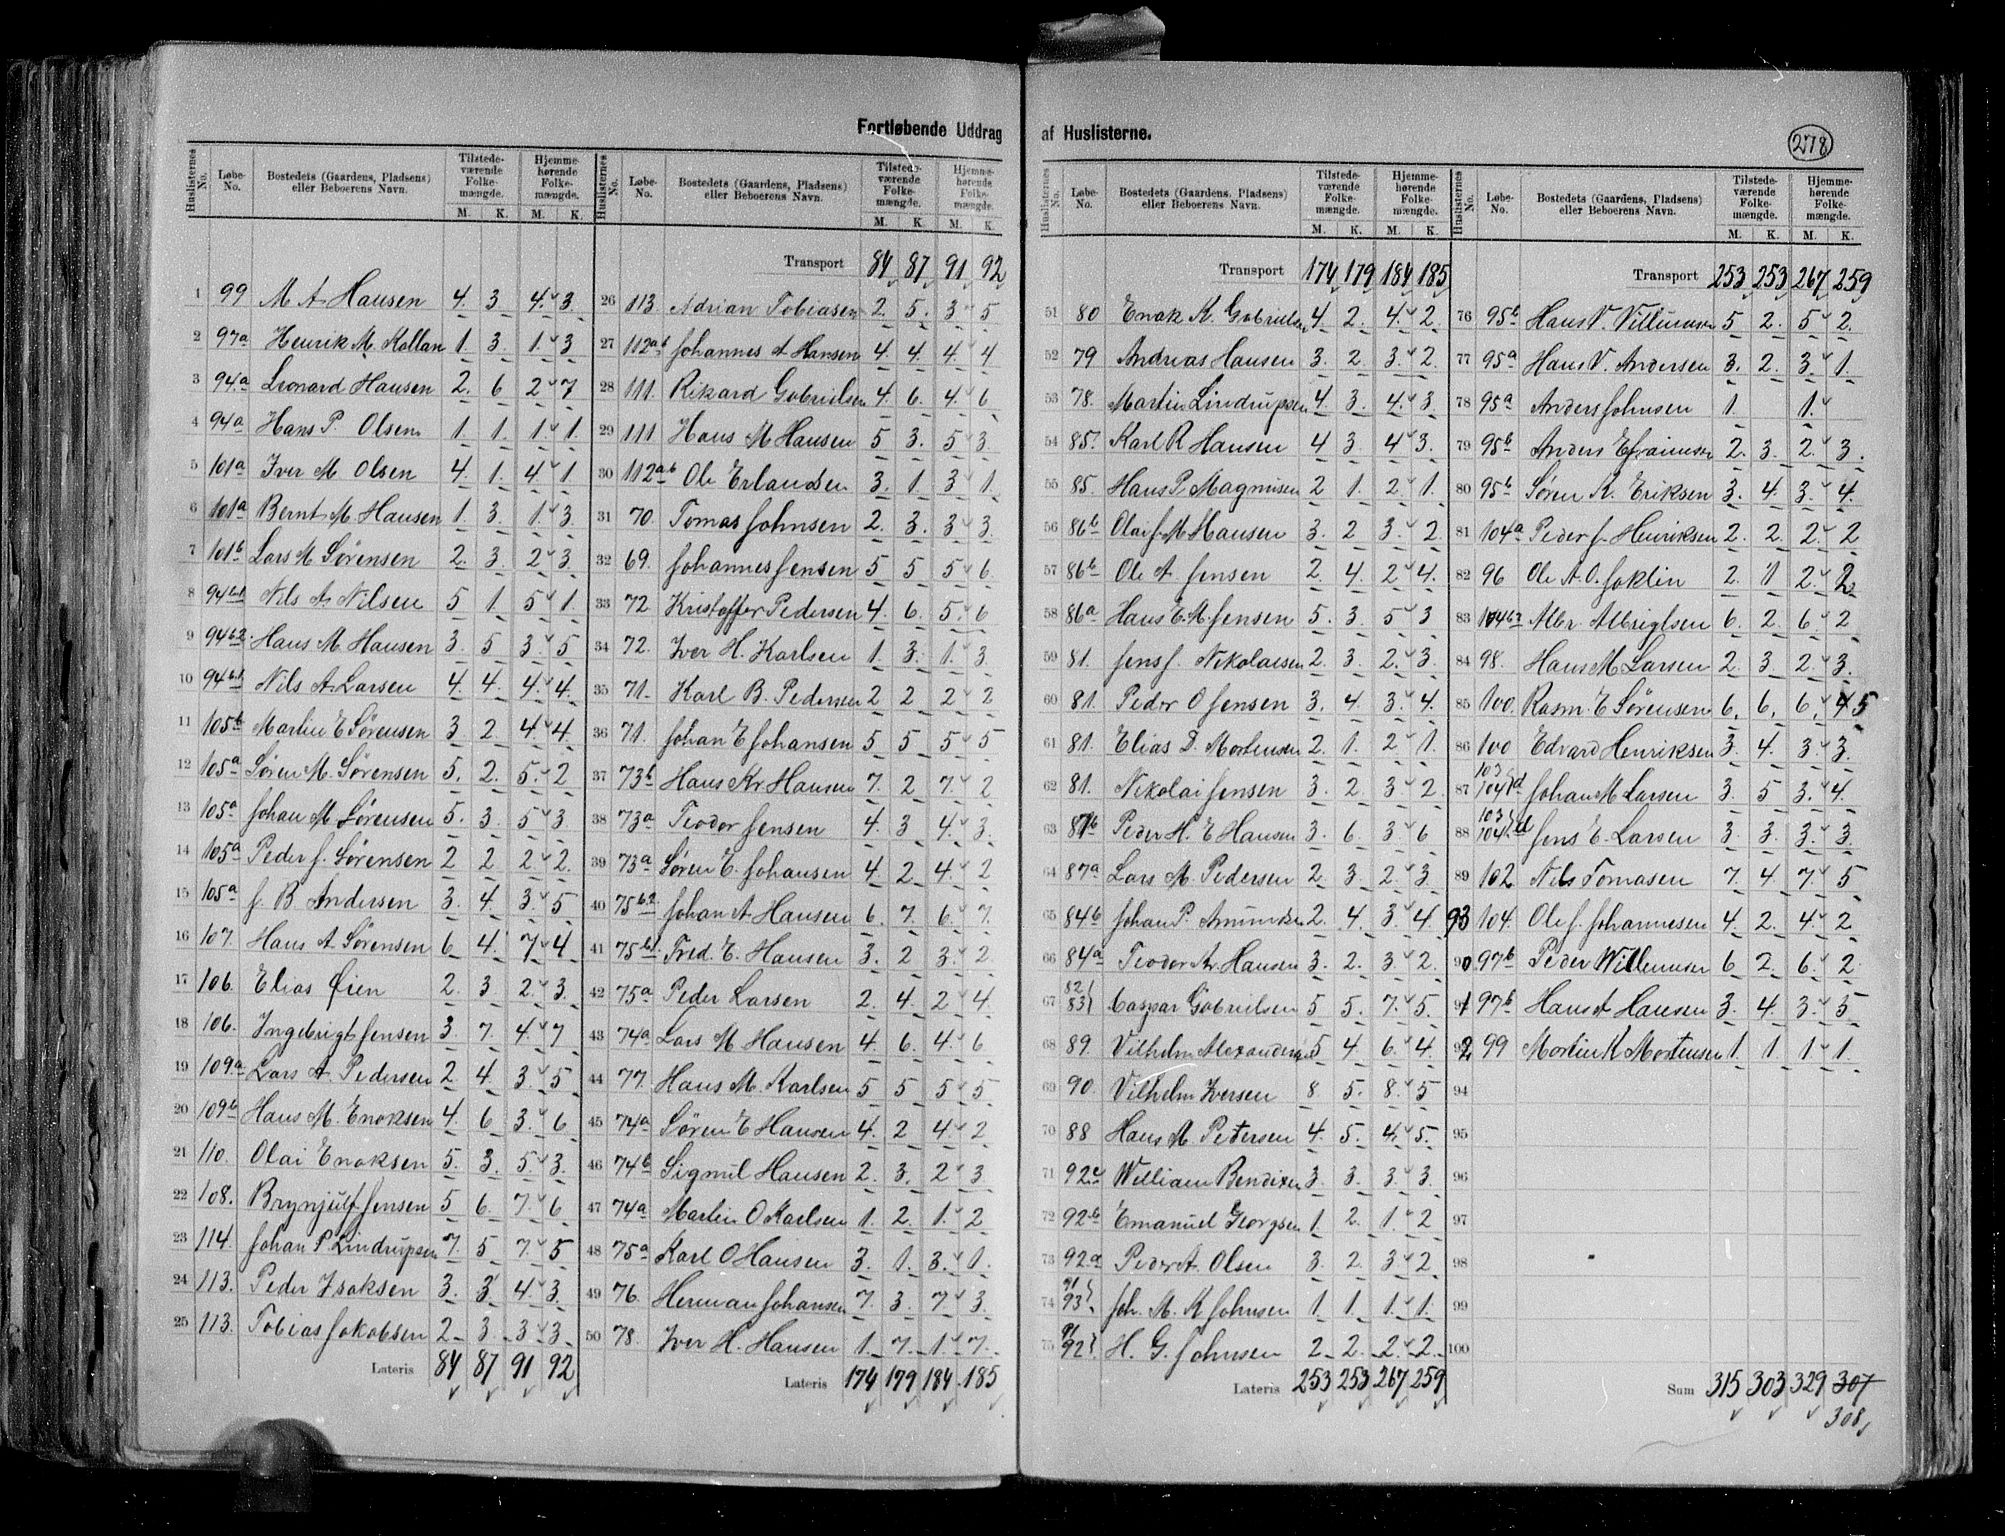 Fortløbende Uddrag af Huslisterne.
278
Huslisternes No. Løbe-No. Bostedets (Gaardens, Pladsens) eller Beboerens Navn. Tilstedeværende Folkemængde. M. K. Hjemmehørende Folkemængde. M. K.
1 99 M A Hansen 4. 3. 4. 3.
2 97a Henrik M. Kollan 1. 3. 1. 3
3 94a Leonard Hansen 2. 6 2 7
4 94a Hans P Olsen 1. 1. 1. 1.
5 101a Iver M Olsen 4 1. 4 1
6 101a Bernt M. Hansen 1. 3. 1. 3.
7 101b Lars M Sørensen 2. 3. 2 3.
8 94b1 Nils A Nilsen 5 1. 5 1.
9 94b2 Hans M Hansen 3. 5 3. 5
10 94b1 Nils A Larsen 4. 4. 4. 4.
11 105b Martin E Sørensen 3. 2. 4. 4.
12 105a Søren M. Sørensen 5. 2. 5. 2.
13 105a Johan M Sørensen 5. 3. 5 3.
14 105a Peder J. Sørensen 2 2 2 2.
15 105a J. B. Andersen 3. 4. 3. 5
16 107. Hans A. Sørensen 6 4. 7 4
17 106. Elias Øien 2. 3. 2. 3.
18 106. Ingebrigt Jensen 3. 7. 4. 7
19 109a Lars A. Pedersen 2 4. 3. 5
20 109b Hans M. Enoksen 4. 6 3. 6
21 110. Olai Enoksen 5. 3. 5 3.
22 108. Brynjulf Jensen 5 6. 7. 6
23 114. Johan P Lindrupsen 7. 5 7. 5
24 113. Peder Isaksen 3. 3. 4. 3.
25 113. Tobias Jakobsen 2 3. 3 3
Lateris 84 87 91 92
Huslisternes No. Løbe-No. Bostedets (Gaardens, Pladsens) eller Beboerens Navn. Tilstedeværende Folkemængde. M. K. Hjemmehørende Folkemængde. M. K.
Transport 84 87 91 92
26 113. Adrian Tobiasen 2. 5. 3 5
27 112ab Johannes A Hansen 4. 4. 4. 4
28 111. Rikard Gabrielsen 4. 6. 4. 6
29 111 Hans M Hansen 5 3. 5 3.
30 112ab Ole Erlandsen 3. 1. 3 1.
31 70. Tomas Johnsen 2. 3. 3 3
32 69. Johannes Jensen 5 5 5 6.
33 72 Kristoffer Pedersen 4. 6. 5. 6
34 72. Iver H. Karlsen 1. 3. 1. 3
35 71. Karl B. Pedersen 2 2 2 2
36 71. Johan E Johansen 5 5 5 5
37 73b Hans Kr Hansen 7. 2 7. 2
38 73a Teodor Jensen 4. 3 4. 3.
39 73a Søren E. Johansen 4 2 4. 2
40 75b2 Johan A Hansen 6. 7. 6. 7.
41 75b1 Fred. E. Hansen 3. 2 3. 2.
42 75a Peder Larsen 2 4. 2 4.
43 74a Lars M Hansen 4 6. 4. 6
44 77. Hans M. Karlsen 5 5 5 5
45 74a Søren E Hansen 4. 2 4. 2
46 74b Sigmul Hansen 2. 3. 2 3
47 74a Martin O Karlsen 1. 2. 1. 2
48 75a Karl O Hansen 3. 1. 3. 1.
49 76. Herman Johansen 7. 3. 7 3.
50 78. Iver H. Hansen 1 7. 1 7.
Lateris 174 179 184 185
Huslisternes No. Løbe-No. Bostedets (Gaardens, Pladsens) eller Beboerens Navn. Tilstedeværende Folkemængde. M. K. Hjemmehørende Folkemængde. M. K.
Transport 174 179 184 185
51 80 Enok K. Gabrielsen 4 2. 4. 2.
52 79 Andreas Hansen 3. 2 3. 2.
53 78. Martin Lindrupsen 4 3. 4. 3
54 85. Karl R Hansen 4 3. 4 3.
55 85. Hans P. Magnusen 2 1. 2. 1.
56 86b Olai J. M Hansen 3. 2 3. 2.
57 86b Ole A. Jensen 2. 4. 2 4.
58 86a Hans E. M. Jensen 5. 3. 5 3
59 81. Jens J. Nikolaisen 2. 3. 2. 3.
60 81. Peder O Jensen 3. 4. 3. 4.
61 81. Elias D. Mortensen 2. 1. 2 1.
62 81. Nikolai Jensen 3. 2 3 2.
63 87b Peder H. E Hansen 3. 6. 3 6
64 87a Lars M. Pedersen 2. 3. 2 3.
65 84b Johan P. 2 4. 3 4.
66 84a Teodor Ar. Hansen 3. 2. 3. 2.
67 82 83 Caspar Gabrielsen 5 5. 7. 5.
68 89. Vilhelm Alexandersen 5 4 6 4.
69 90. Vilhelm Iversen 8 5. 8. 5
70 88 Hans M. Petersen 4. 5. 4. 5.
71 92c William Bendixen 3. 3. 3. 3.
72 92b Emanuel Georgsen 1. 2. 1. 2
73 92a Peder A. Olsen 3. 2. 3. 2.
74 91 93 Joh. M. K Johnsen 1. 1. 1. 1.
75 91 92 H. G. Johnsen 2 2. 2 2.
Lateris 253 253 267 259
Huslisternes No. Løbe-No. Bostedets (Gaardens, Pladsens) eller Beboerens Navn. Tilstedeværende Folkemængde. M. K. Hjemmehørende Folkemængde. M. K.
Transport 253 253 267 259
76 95b Hans V. Villumsen 5 2. 5 2.
77 95a Hans V. Andersen 3. 2. 3. 1.
78 95a Anders Johnsen 1. 1.
79 95b Anders Efraimsen 2. 3. 2. 3.
80 95b Søren K. Eriksen 3. 4. 3. 4.
81 104a Peder J. Henriksen 2. 2. 2. 2
82 96 Ole A. O. Joklin 2. 1 2. 2
83 104b2 Albr. Albrigtsen 6. 2 6. 2
84 98. Hans M. Larsen 2 3. 2 3.
85 100. Rasm. E Sørensen 6. 6. 6. 4 5
86 100 Edvard Henriksen 3. 4. 3. 3.
87 103 104 d Johan M Larsen 3. 5 3. 4.
88 103 104 d Jens E. Larsen 3. 3. 3. 3.
89 102 Nils Tomasen 7. 4. 7. 5
93 104. Ole J. Johannesen 4. 2. 4. 2
90 97b Peder Willumsen 6 2. 6. 2.
91 97b Hans A Hansen 3. 4. 3. 5
92 99 Martin K Mortensen 1. 1. 1 1.
94
95
96
97
98
99
100
Sum 315 303 329 307
308